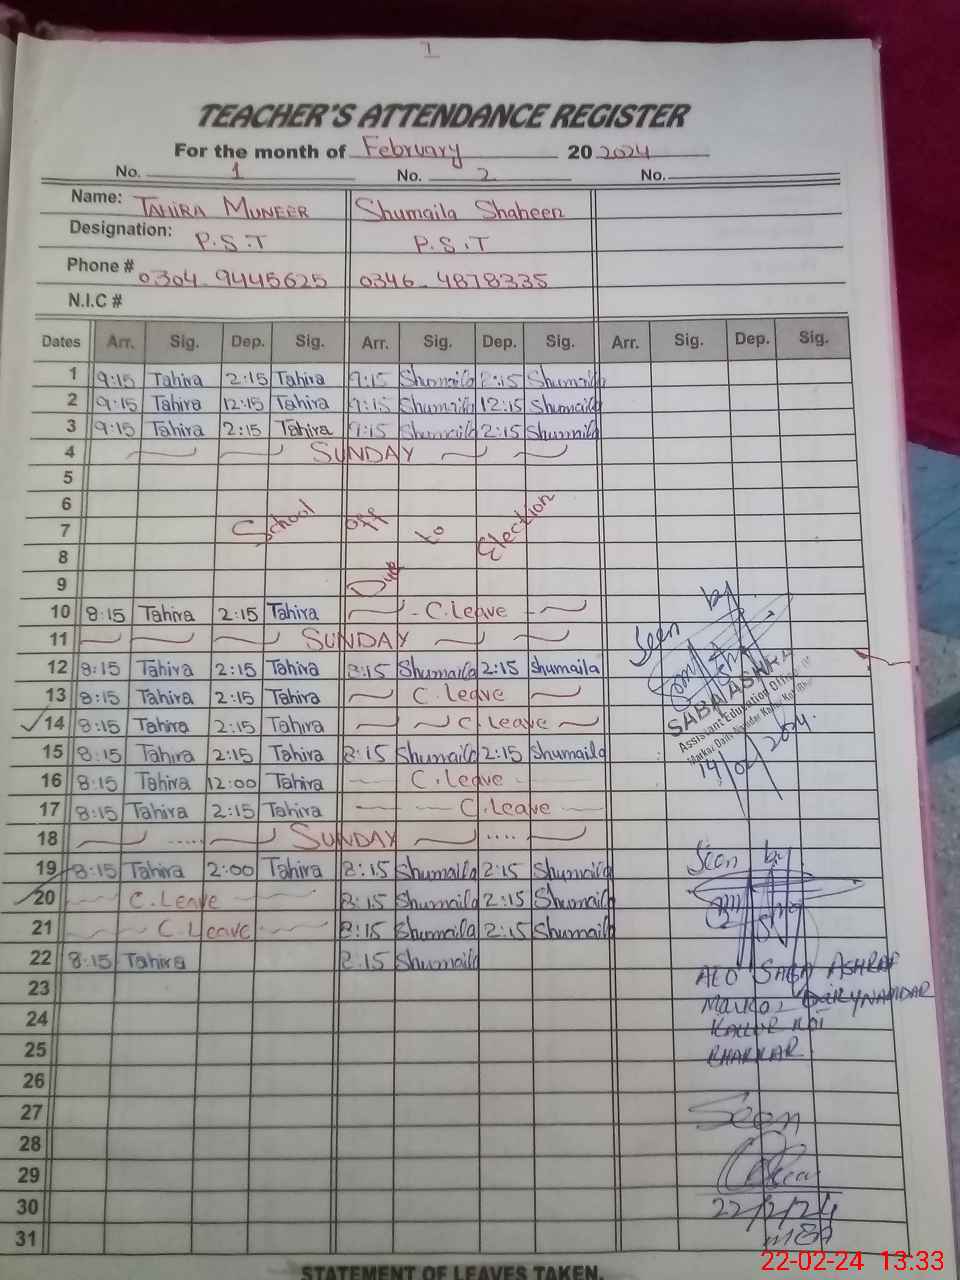 1
TEACHER'S ATTENDANCE REGISTER
For the month of February 20 2024
No. 1 No. 2 No.
Name: TAHIRA MUNEER Shumaila Shaheen
Designation: P.S.T P.S.T
Phone # 0304-9445625 0346-4878335
N.I.C #
Dates Arr. Sig. Dep. Sig. Arr. Sig. Dep. Sig. Arr. Sig. Dep. Sig.
1 9:15 Tahira 2:15 Tahira 9:15 Shumaila 2:15 Shumaila
2 9:15 Tahira 12:15 Tahira 9:15 Shumaila 12:15 Shumaila
3 9:15 Tahira 2:15 Tahira 9:15 Shumaila 2:15 Shumaila
4 SUNDAY
5
6
7 School off Due to Election
8
9
10 8:15 Tahira 2:15 Tahira C.Leave
11 SUNDAY
12 8:15 Tahira 2:15 Tahira 8:15 Shumaila 2:15 Shumaila
13 8:15 Tahira 2:15 Tahira C.Leave
14 8:15 Tahira 2:15 Tahira C.Leave
15 8:15 Tahira 2:15 Tahira 8:15 Shumaila 2:15 Shumaila
16 8:15 Tahira 12:00 Tahira C.Leave
17 8:15 Tahira 2:15 Tahira C.Leave
18 SUNDAY
19 8:15 Tahira 2:00 Tahira 8:15 Shumaila 2:15 Shumaila
20 C.Leave 8:15 Shumaila 2:15 Shumaila
21 C.Leave 8:15 Shumaila 2:15 Shumaila
22 8:15 Tahira 8:15 Shumaila
23
24
25
26
27
28
29
30
31
Seen by
SABA ASHRA
Assistant Education Officer
14/02/2024.
Seen by
AEO SABA ASHRAF
Markaz
BHAKKAR
Seen
22/2/24
MEA
STATEMENT OF LEAVES TAKEN.
22-02-24 13:33